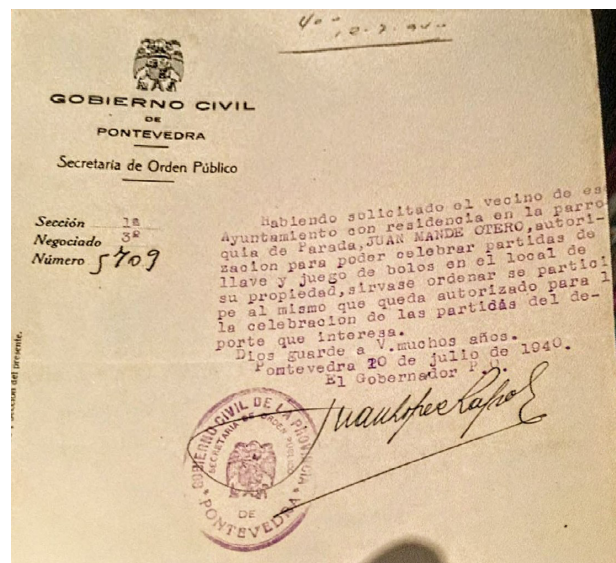 GOBIERNO CIVIL
DE
PONTEVEDRA
Secretaría de Orden Público
Sección 1ª
Negociado 3º
Número 5709
Habiendo solicitado el vecino de es
Ayuntamiento con residencia en la parro
quia de Parada,JUAN MANDE OTERO,autori-
zacion para poder celebrar partidas de
llave y juego de bolos en el local de
su propiedad,sirvase ordenar se partici
pe al mismo que queda autorizado para l
la celebracion de las partidas del de-
porte que interesa.
Dios guarde a V.muchos años.
Pontevedra 10 de julio de 1940.
El Gobernador P.O.
Juan Lopez
GOBIERNO CIVIL DE LA PROVINCIA
SECRETARIA DE ORDEN PUBLICO
DE
PONTEVEDRA
del presente.